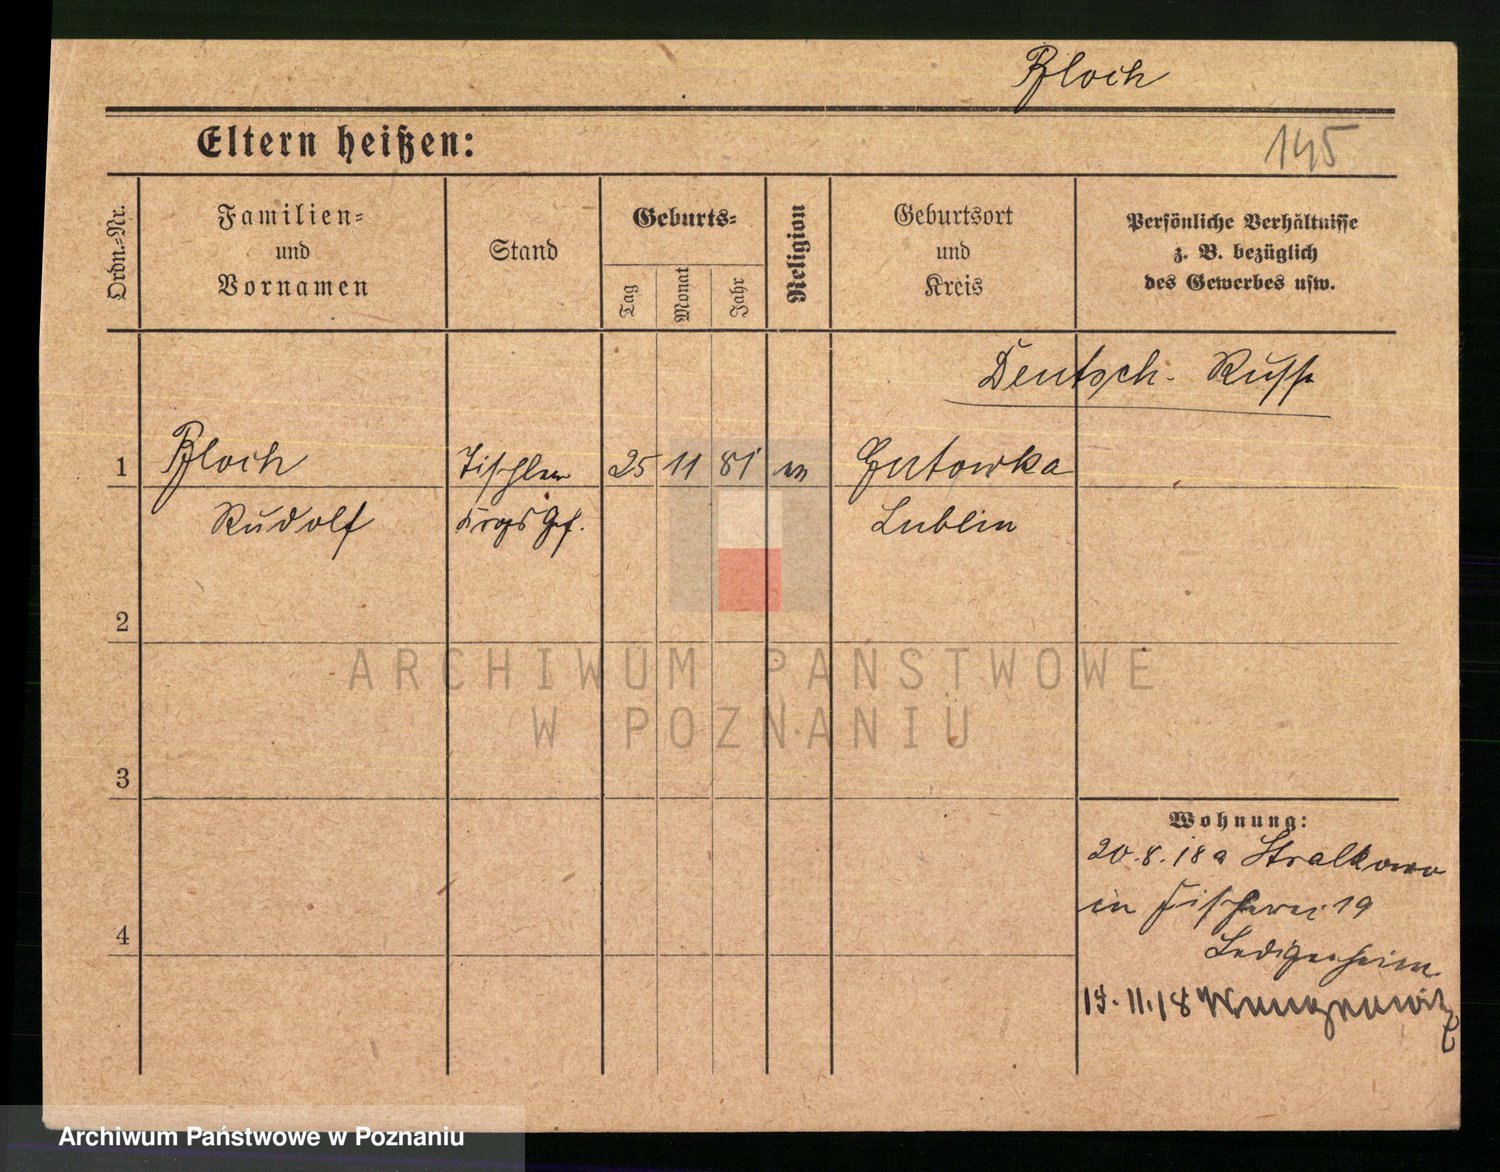 Bloch
Eltern heißen:
145
Ordn.-Nr.
Familien-
und
Vornamen
Stand
Geburts-
Tag
Monat
Jahr
Religion
Geburtsort
und
Kreis
Persönliche Verhältnisse
z. B. bezüglich
des Gewerbes usw.
Deutsch-Russe
1
Bloch
Tischler
25
11
81
ev
Gutowka
Rudolf
Lublin
2
3
4
ARCHIWUM PAŃSTWOWE
W POZNANIU
Wohnung:
20.8.18 a Stralkowo
in Fischerei 19
Ledigenheim
11.18
Archiwum Państwowe w Poznaniu